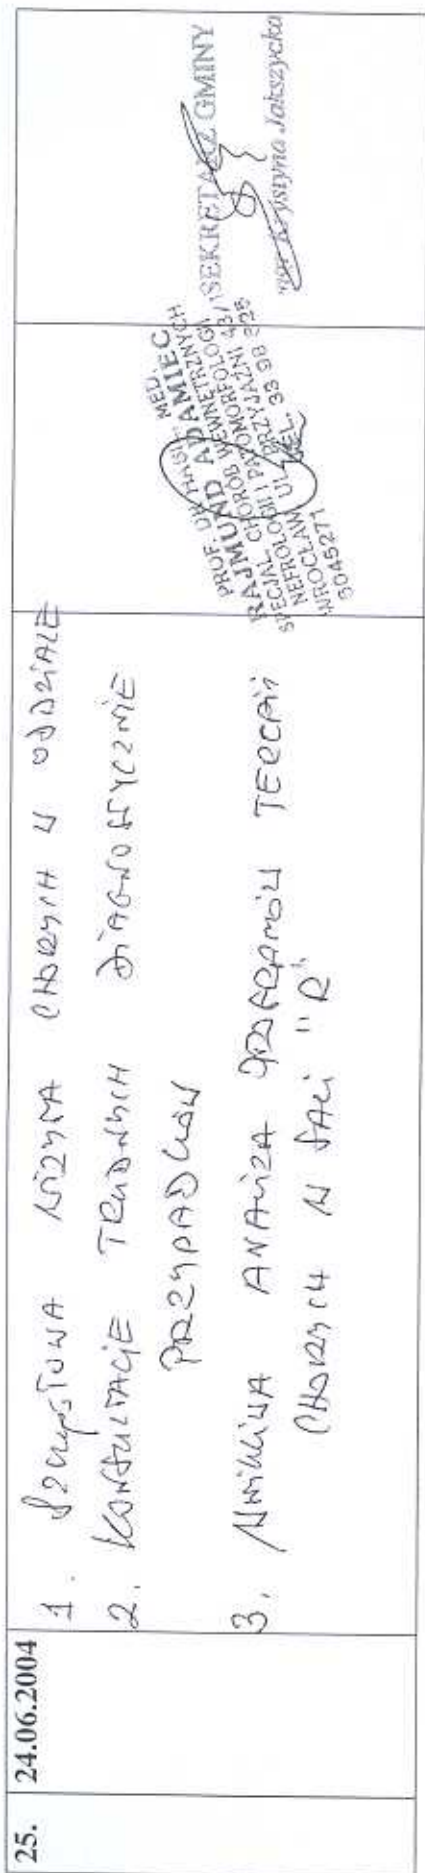 25.
24.06.2004
1. SZCZEGÓŁOWA WIZYTA CHORYCH W ODDZIALE
2. KONSULTACJE TRUDNYCH DIAGNOSTYCZNIE
PRZYPADKÓW
3. WNIKLIWA ANALIZA PROGRAMÓW TERAPII
CHORYCH W SALI "R"
PROF. DR HAB. MED.
RAJMUND ADAMIEC
SPECJAL. CHORÓB WEWNĘTRZNYCH
NEFROLOGII I PATOMORFOLOGII
WROCŁAW UL. PRZYJAŹNI 43/1
TEL. 33 98 328
5045271
SEKRETARZ GMINY
Krystyna Jakszycka